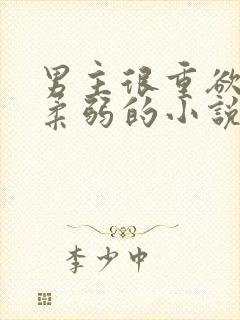 男主很重欲
柔弱的小説
李少中